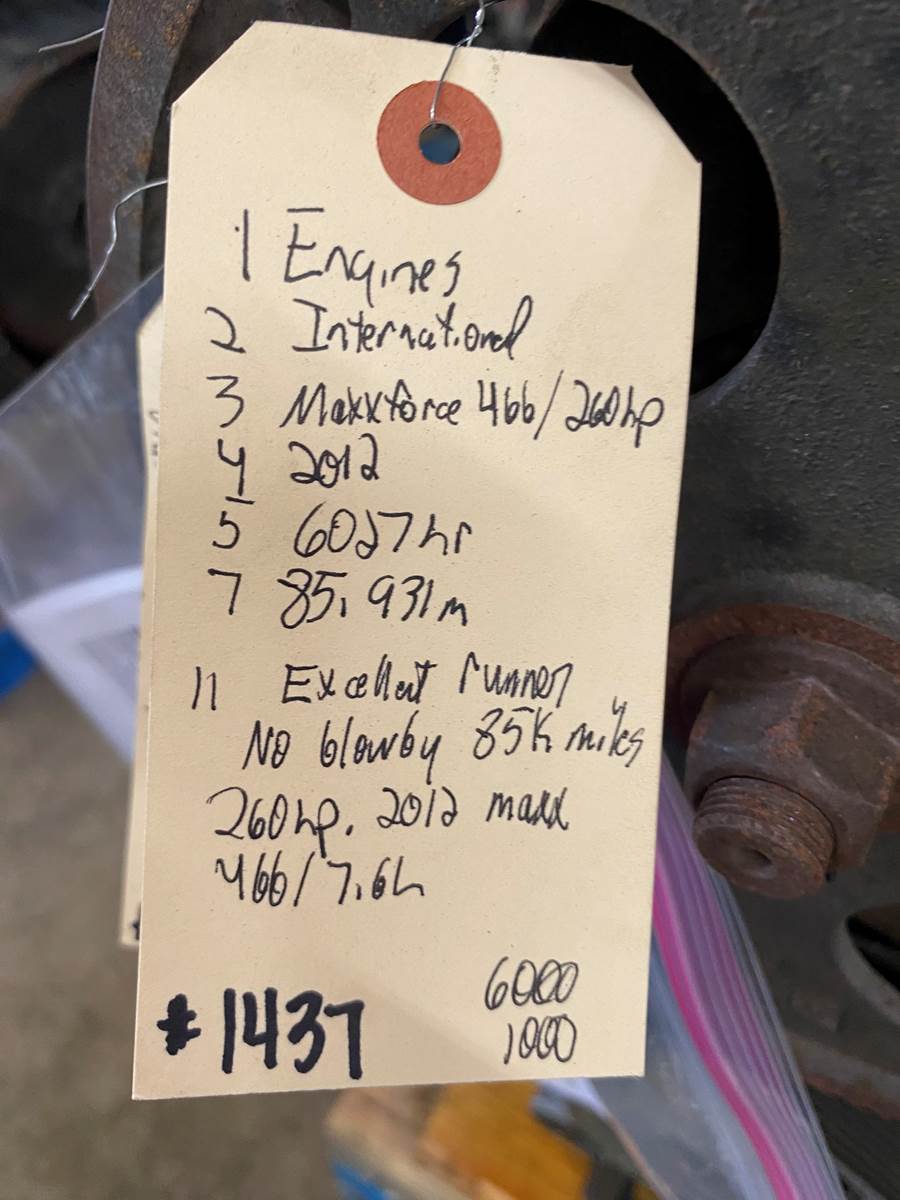 1 Engines
2 International
3 Maxxforce 466/260hp
4 2012
5 6027hr
7 85,931m
11 Excellent runner
No blowby 85K miles
260hp. 2012 maxx
466/7.6L
#1437
6000
1000